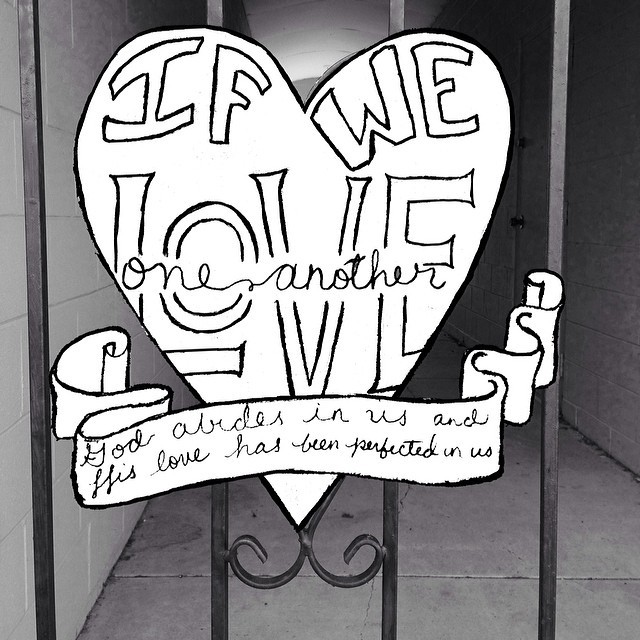 IF WE
LOVE
one another
God abides in us and
His love has been perfected in us